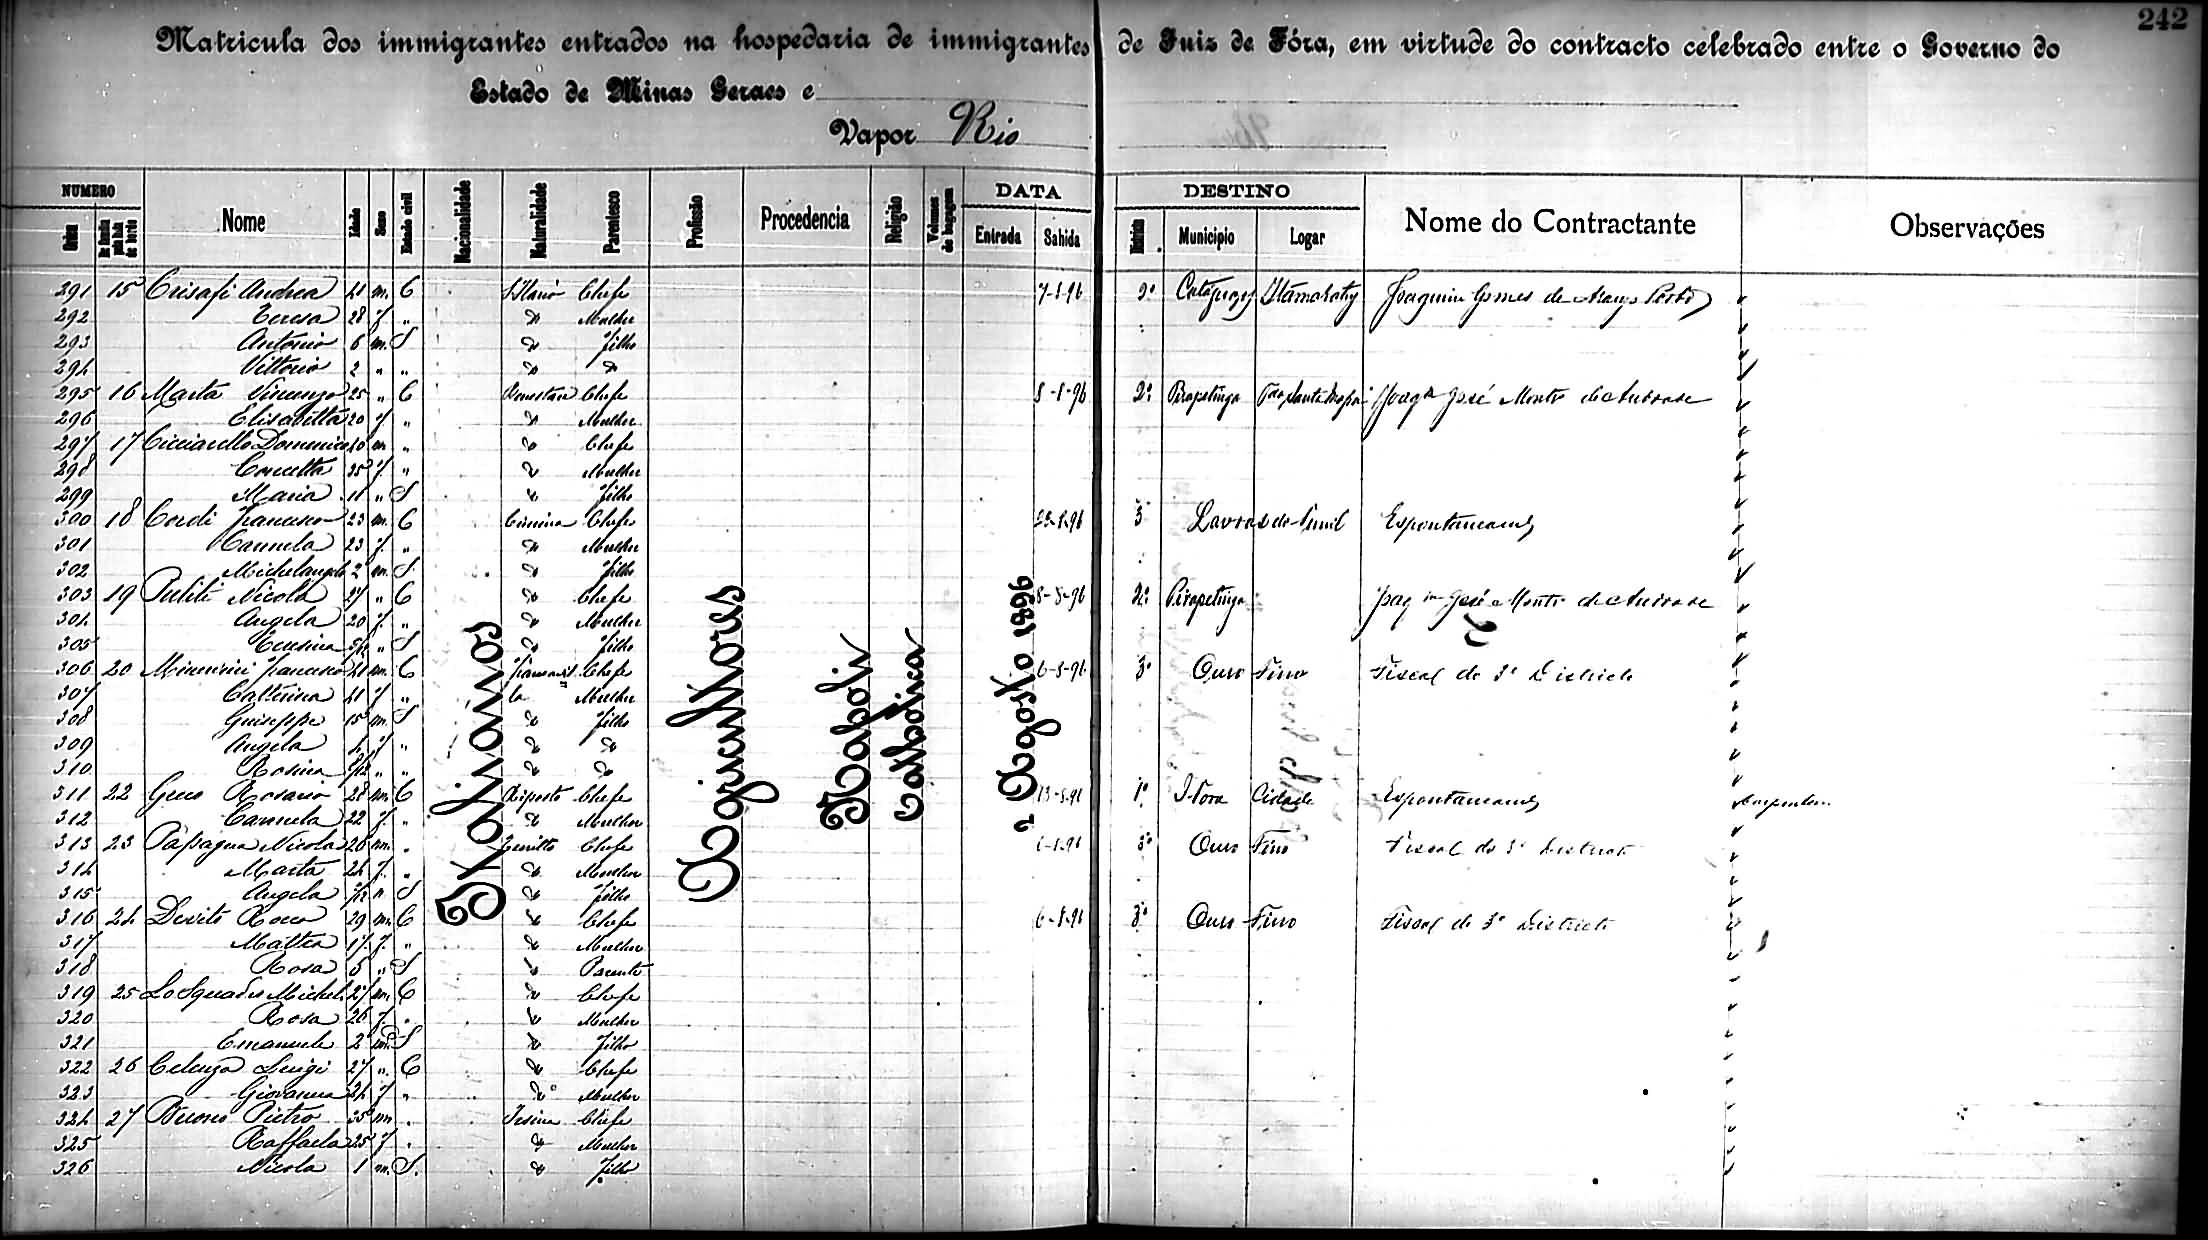 242
Matricula dos immigrantes entrados na hospedaria de immigrantes de Juiz de Fóra, em virtude do contracto celebrado entre o Governo do
Estado de Minas Geraes e
Vapor Rio
NUMERO DATA DESTINO
Ordem Nome Idade Sexo Estado civil Nacionalidade Naturalidade Parentesco Profissão Procedencia Religião Volumes de bagagem Entrada Sahida Districto Municipio Logar Nome do Contractante Observações
Italianos
Agricultores
Napoli
Catholica
2 Agosto 1896
291 15 Crisafi Andrea m. C Chefe 7-8-96 2º Itamaraty Joaquim Gomes de Araujo Porto
292 Teresa 28 f " " Mulher
293 Antonio 6 m. S " Filho
294 Vittorio 2 " " " "
295 16 Marta Vincenzo 25 " C Chefe 8-8-96 2º Pirapetinga Joaqm José Montr de Andrade
296 Elisabetta 20 f " " Mulher
297 17 Cicciarello Domenico m " " Chefe
298 Concetta 25 f. " " Mulher
299 Maria 11 " S " Filho
300 18 Cordi Francesco 23 m. C Chefe 3 Lavras do Funil Espontaneamte
301 Carmela 23 f. " " Mulher
302 Michelangelo 2 m. S " Filho
303 19 Puliti Nicola 27 " C " Chefe 8-8-96 2º Pirapetinga Joaqm José Montr de Andrade
304 Angela 20 f. " " Mulher
305 " S " Filho
306 20 Minervini Francesco 41 m. C Chefe 6-8-96 3º Ouro Fino Fiscal do 3º Districto
307 Catterina 41 f " Mulher
308 Guiseppe 15 m. S " Filho
309 Angela 4 f " " "
310 Rosina " " " "
311 22 Greco Rosario 28 m. C Riposto Chefe 13-8-96 1º J. Fora Cidade Espontaneamte
312 Carmela 22 f. " " Mulher
313 23 Papagna Nicola 26 m. " Chefe 6-8-96 3º Ouro Fino Fiscal do 3º Districto
314 Marta 24 f. " " Mulher
315 Angela " S " Filho
316 24 Devito Rocco 29 m. C " Chefe 6-8-96 3º Ouro Fino Fiscal do 3º Districto
317 Mattia 17 f. " " Mulher
318 Rosa 5 " S " Parente
319 25 Lo Squadro Michele 27 m. C " Chefe
320 Rosa 26 f. " " Mulher
321 Emanuele 2 m. S " Filho
322 26 Celenza Luigi 27 " C " Chefe
323 Giovanna 24 f " " Mulher
324 27 Buono Pietro 35 m. " Irsina Chefe
325 Raffaela 25 f " " Mulher
326 Nicola 1 m. S. " Filho